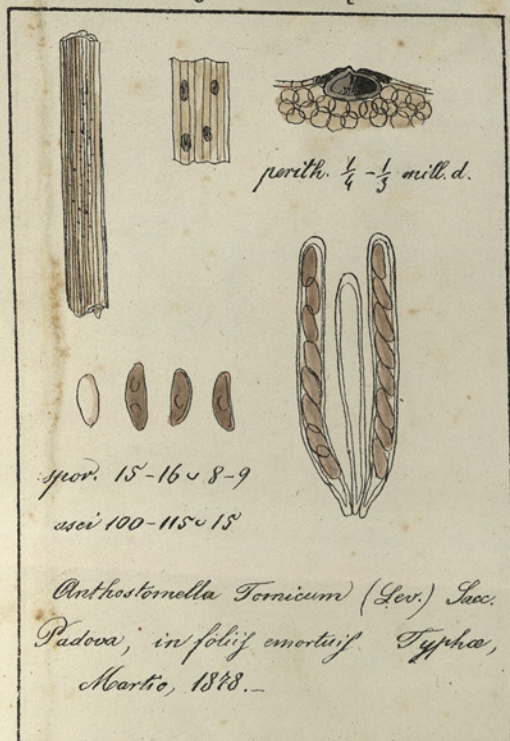 perith. 1/4 - 1/3 mill. d.
spor. 15-16 ᴗ 8-9
asci 100-115 ᴗ 15
Anthostomella Tomicum (Lev.) Sacc.
Padova, in foliis emortuis Typhæ,
Martio, 1878.-